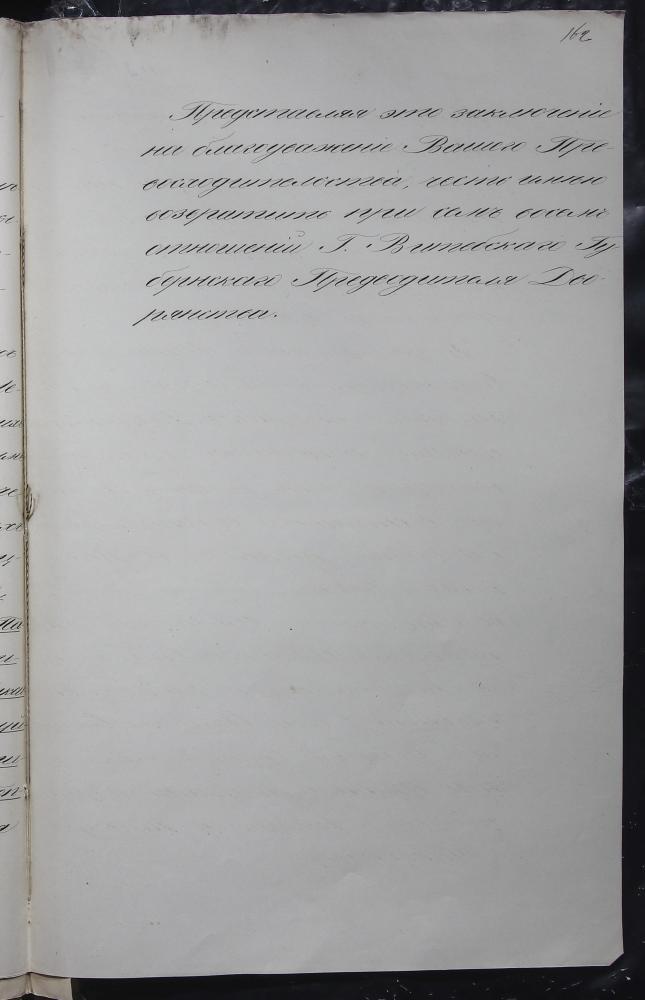 162
Представляя это заключеніе
на благоуваженіе Вашего Пре-
восходительства, честь имѣю
возвратить при семъ восемь
отношеній Г. Витебскаго Гу-
бернскаго Предводителя Дво-
рянства.